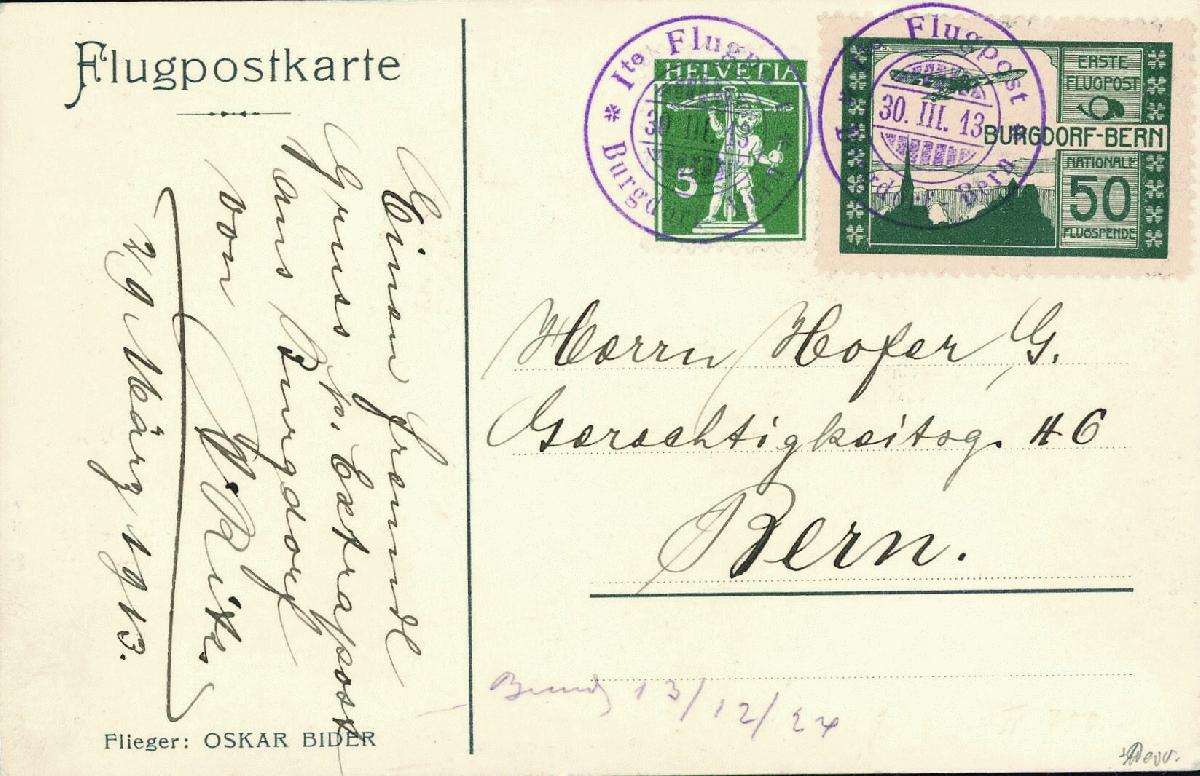 Flugpostkarte
Einen freundl
Gruss p. Extrapost
aus Burgdorf
von
29 März 1913.
Flieger: OSKAR BIDER
Ite Flugpost
30. III. 13
Burgdorf - Bern
HELVETIA
5
Ite Flugpost
30. III. 13
Burgdorf - Bern
ERSTE
FLUGPOST
BURGDORF-BERN
NATIONALE
50
FLUGSPENDE
Herrn Hofer G.
Gerechtigkeitsg. 46
Bern.
13/12/24